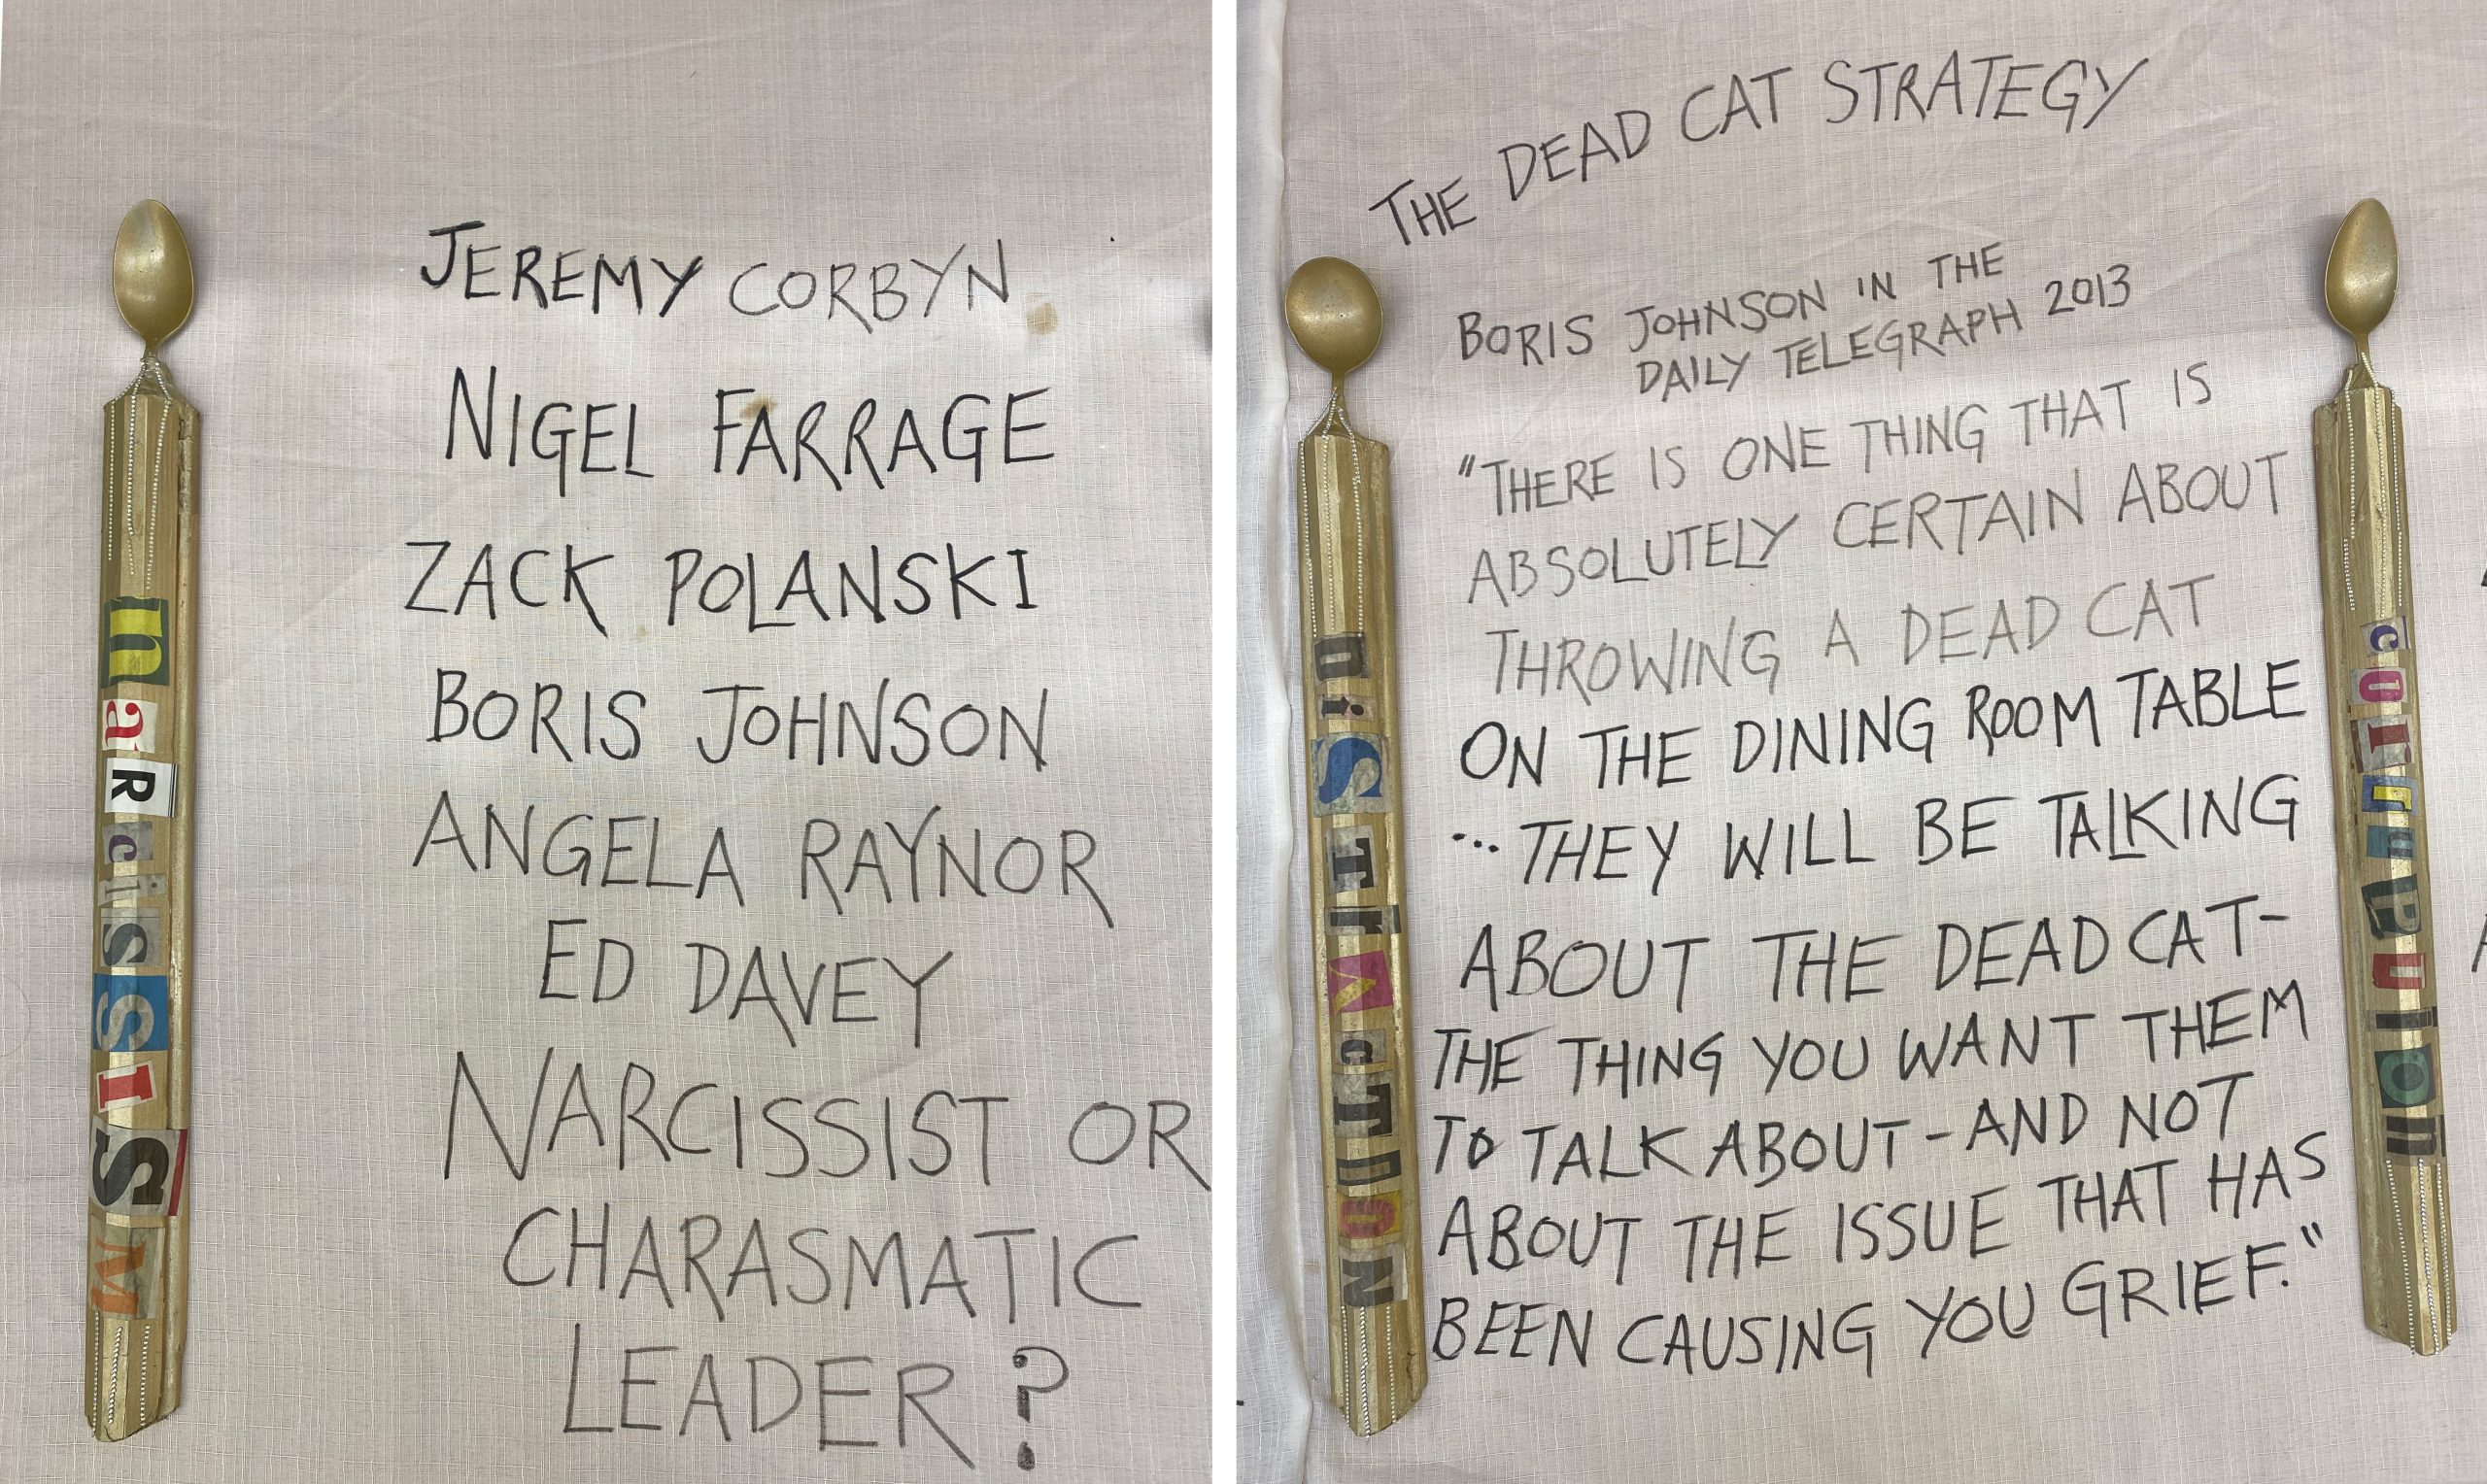 naRcisSISM
JEREMY CORBYN
NIGEL FARRAGE
ZACK POLANSKI
BORIS JOHNSON
ANGELA RAYNOR
ED DAVEY
NARCISSIST OR
CHARASMATIC
LEADER?
THE DEAD CAT STRATEGY
DiSTrAcTION
BORIS JOHNSON IN THE
DAILY TELEGRAPH 2013
"THERE IS ONE THING THAT IS
ABSOLUTELY CERTAIN ABOUT
THROWING A DEAD CAT
ON THE DINING ROOM TABLE
... THEY WILL BE TALKING
ABOUT THE DEAD CAT-
THE THING YOU WANT THEM
TO TALK ABOUT - AND NOT
ABOUT THE ISSUE THAT HAS
BEEN CAUSING YOU GRIEF."
corruption